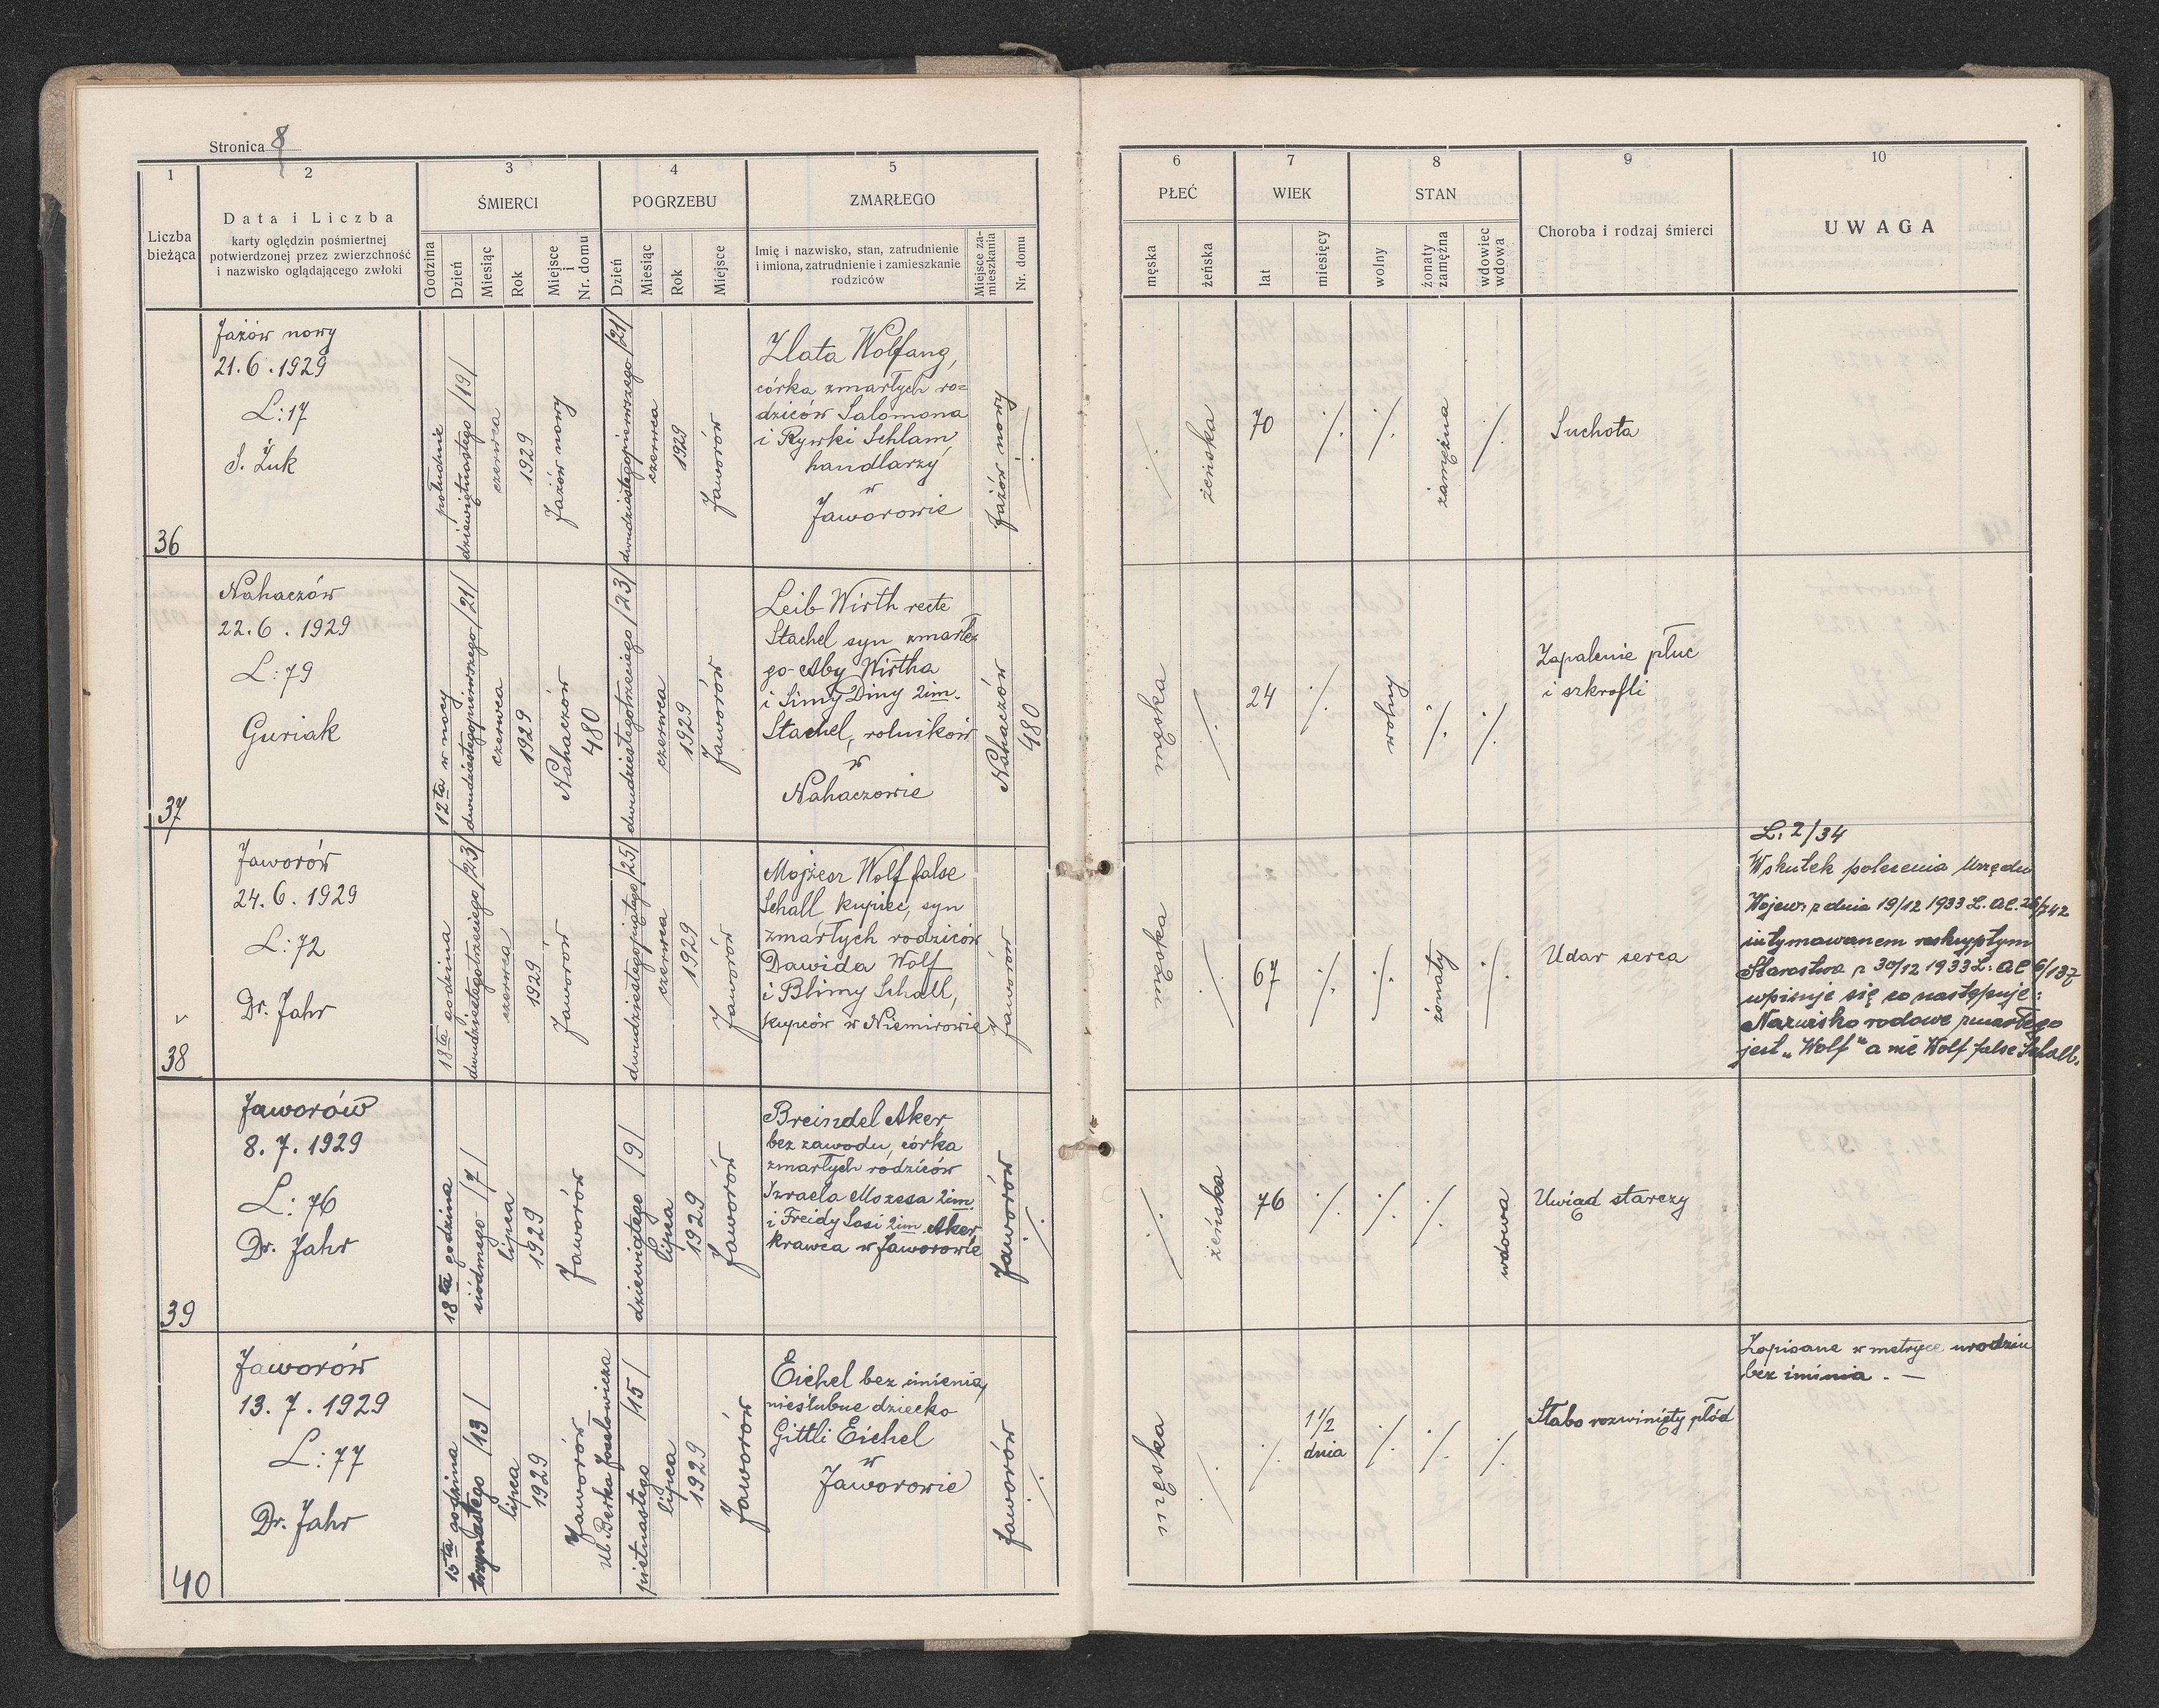 Stronica 8
1
2
3
4
5
6
7
8
9
10
Liczba
bieżąca
Data i Liczba
karty oględzin pośmiertnej
potwierdzonej przez zwierzchność
i nazwisko oglądającego zwłoki
ŚMIERCI
Godzina
Dzień
Miesiąc
Rok
Miejsce
i
Nr. domu
POGRZEBU
Dzień
Miesiąc
Rok
Miejsce
ZMARŁEGO
Imię i nazwisko, stan, zatrudnienie
i imiona, zatrudnienie i zamieszkanie
rodziców
Miejsce za-
mieszkania
Nr. domu
PŁEĆ
męska
żeńska
WIEK
lat
miesięcy
STAN
wolny
żonaty
zamężna
wdowiec
wdowa
Choroba i rodzaj śmierci
UWAGA
36
Jażów nowy
21. 6. 1929
L: 17
S. Żuk
południe
dziewiętnastego /19/
czerwca
1929
Jażów nowy
dwudziestegopierwszego /21/
czerwca
1929
Jaworów
Zlata Wolfang,
córka zmarłych ro=
dziców Salomona
i Rywki Schlam
handlarzy
w
Jaworowie
Jażów nowy
·/·
·/·
żeńska
70
·/·
·/·
zamężna
·/·
Suchota
37
Nahaczów
22. 6. 1929
L: 79
Guriak
12ta w nocy
dwudziestegopierwszego /21/
czerwca
1929
Nahaczów
480
dwudziestegotrzeciego /23/
czerwca
1929
Jaworów
Leib Wirth recte
Stachel syn zmarłe
go Aby Wirtha
i Simy Diny 2im.
Stachel, rolników
w
Nahaczowie
Nahaczów
480
męska
·/·
24
·/·
wolny
·/·
·/·
Zapalenie płuc
i szkrofli
38
Jaworów
24. 6. 1929
L: 72
Dr. Jahr
18ta godzina
dwudziestegotrzeciego /23/
czerwca
1929
Jaworów
dwudziestegopiątego /25/
czerwca
1929
Jaworów
Mojżesz Wolf false
Schall, kupiec, syn
zmarłych rodziców
Dawida Wolf
i Blimy Schall,
kupców w Niemirowie
Jaworów
męska
·/·
67
·/·
·/·
żonaty
·/·
Udar serca
L: 2/34
Wskutek polecenia Urzędu
Wojew: z dnia 19/12 1933 L. ae. 26/742
intymowanem reskryptem
Starostwa z 30/12 1933 L: ae 6/137
wpisuje się co następuje:
Nazwisko rodowe zmarłego
jest „Wolf" a nie Wolf false Schall.
39
Jaworów
8. 7. 1929
L: 76
Dr. Jahr
18ta godzina
siódmego /7/
lipca
1929
Jaworów
dziewiątego /9/
lipca
1929
Jaworów
Breindel Aker
bez zawodu, córka
zmarłych rodziców
Izraela Mozesa 2im.
i Freidy Sosi 2im. Aker
krawca w Jaworowie
Jaworów
·/·
·/·
żeńska
76
·/·
·/·
·/·
wdowa
Uwiąd starczy
40
Jaworów
13. 7. 1929
L: 77
Dr. Jahr
15ta godzina
trzynastego /13/
lipca
1929
Jaworów
Ul. Berka Joselowicza
pietnastego /15/
lipca
1929
Jaworów
Eichel bez imienia,
nieślubne dziecko
Gittli Eichel
w
Jaworowie
Jaworów
·/·
męska
·/·
·/·
1 1/2
dnia
·/·
·/·
·/·
Słabo rozwinięty płód
Zapisane w metryce urodzin
bez iminia. —